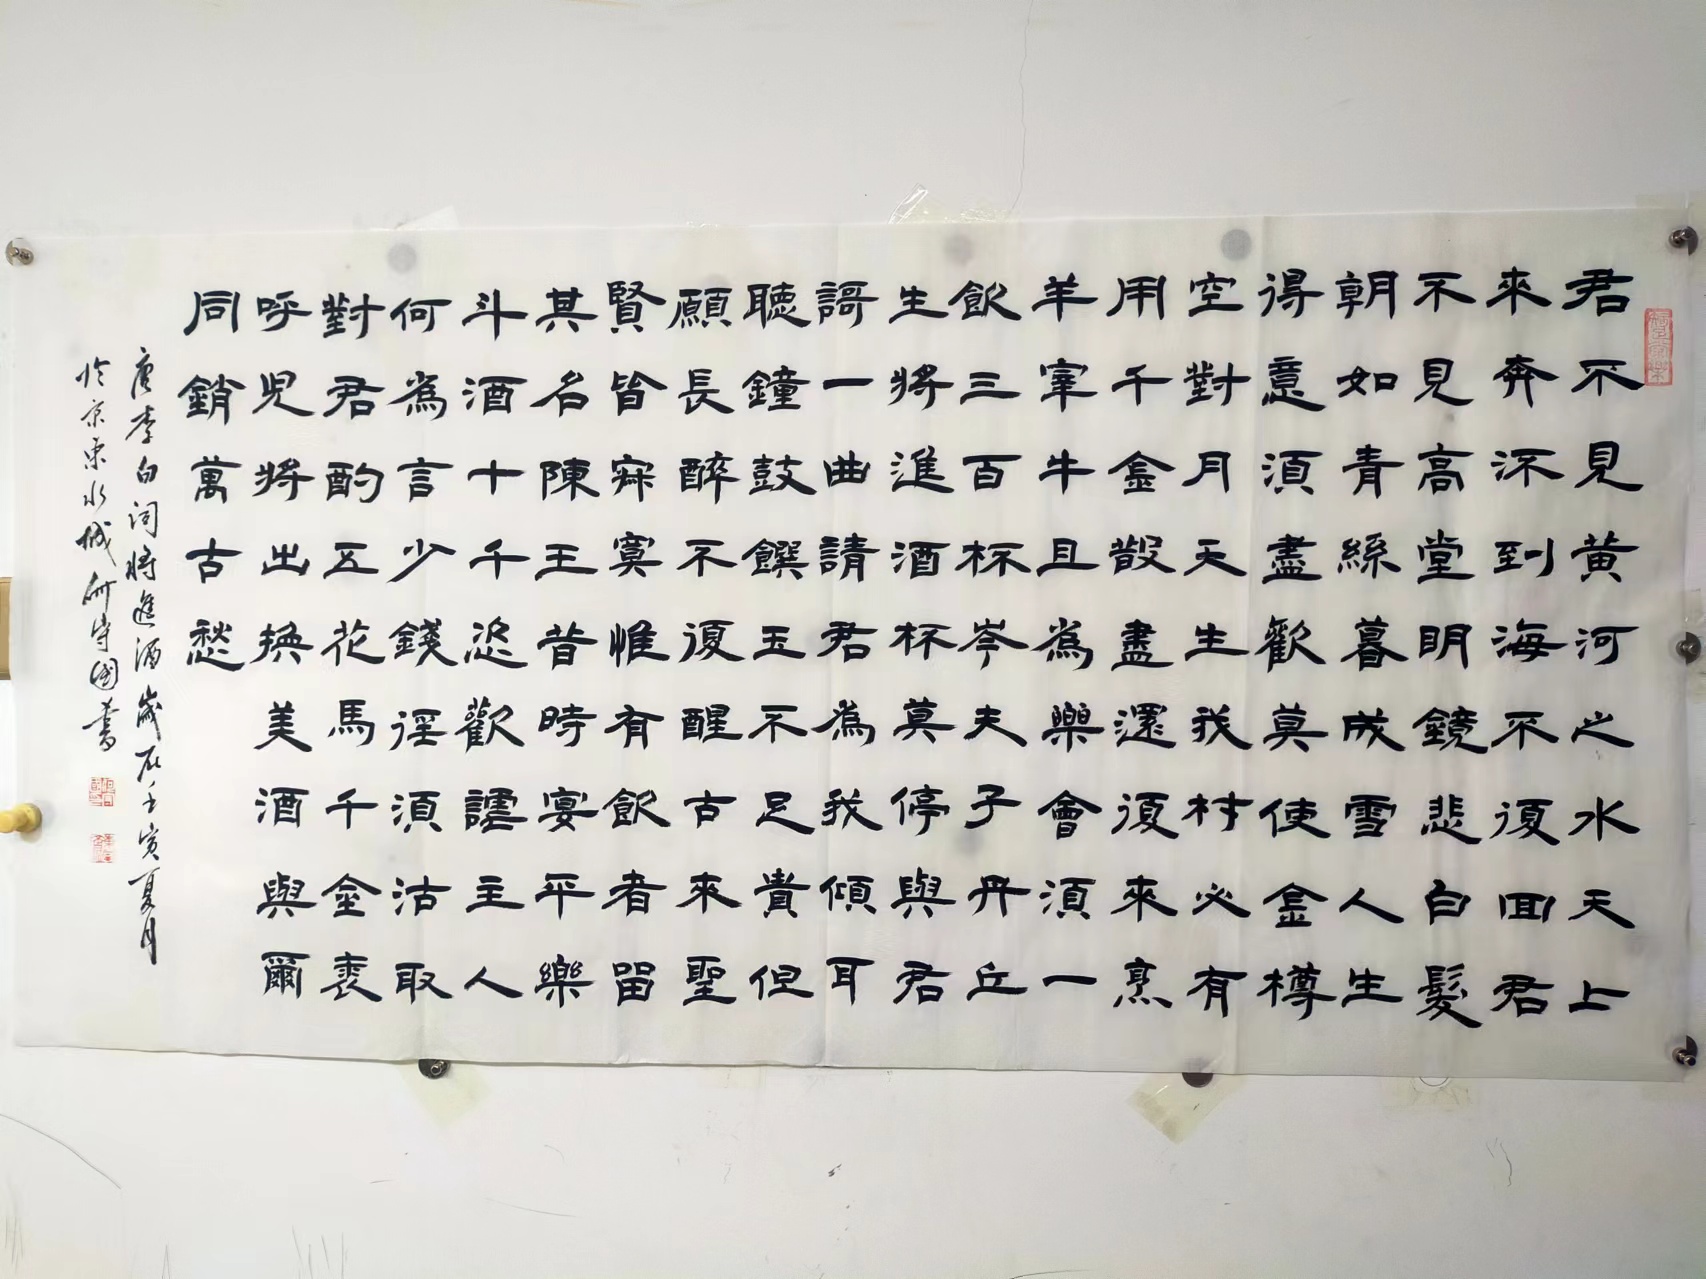 君不見黄河之水天上
來奔流到海不復回君
不見高堂明鏡悲白髮
朝如青絲暮成雪人生
得意須盡歡莫使金樽
空對月天生我材必有
用千金散盡還復來烹
羊宰牛且為樂會須一
飲三百杯岑夫子丹丘
生將進酒杯莫停與君
謌一曲請君為我傾耳
聽鐘鼓饌玉不足貴但
願長醉不復醒古來聖
賢皆寂寞惟有飲者留
其名陳王昔時宴平樂
斗酒十千恣歡謔主人
何為言少錢徑須沽取
對君酌五花馬千金裘
呼兒將出換美酒與爾
同銷萬古愁
唐李白词將進酒歲在壬寅夏月
於京東水城守國書